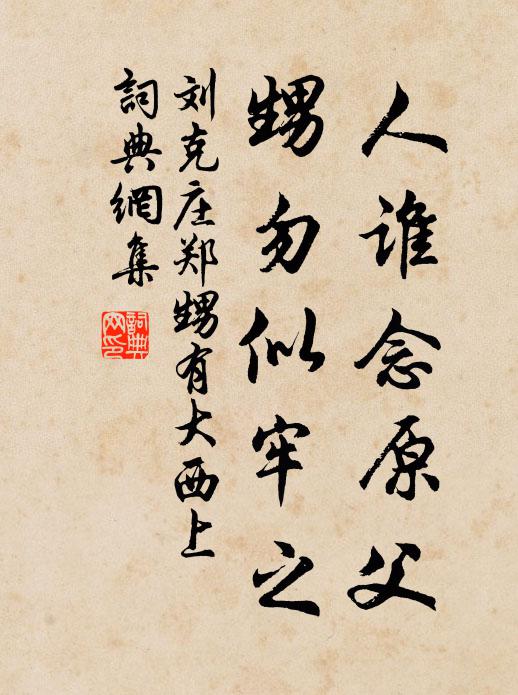 人谁念原父
甥勿似牢之
刘克庄郑甥有大西上
詞典網集
詞典
网印